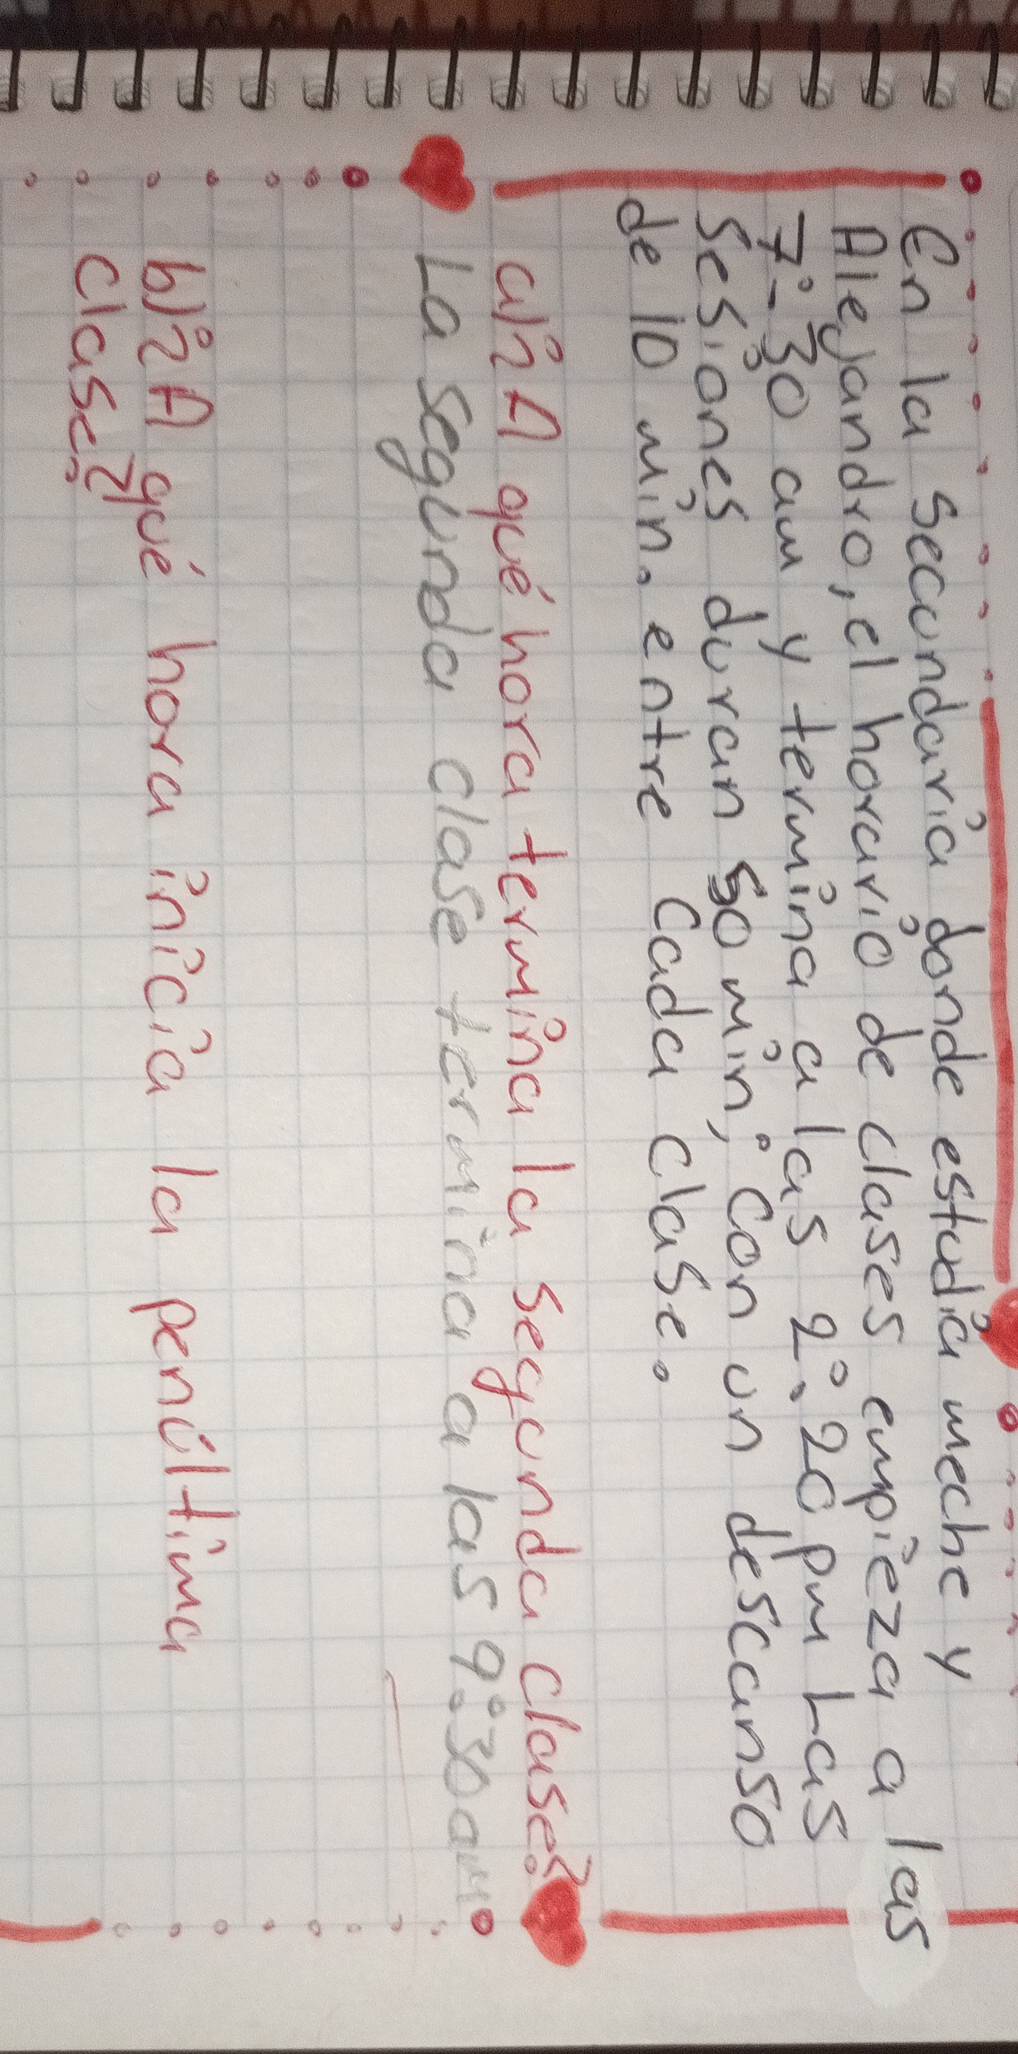 En la secundaria donde estudia meche y
Alejandro, el horario de clases empieza a las
7:30 am y termina a las 2:20 pm Las
sesiones duran 50 min, con un descanso
de 10 min. entre cada clase.
a)¿A qué hora termina la segunda clase?
La segunda clase termina a las 9:30 am
b)¿A qué hora inicia la penúltima
clase?